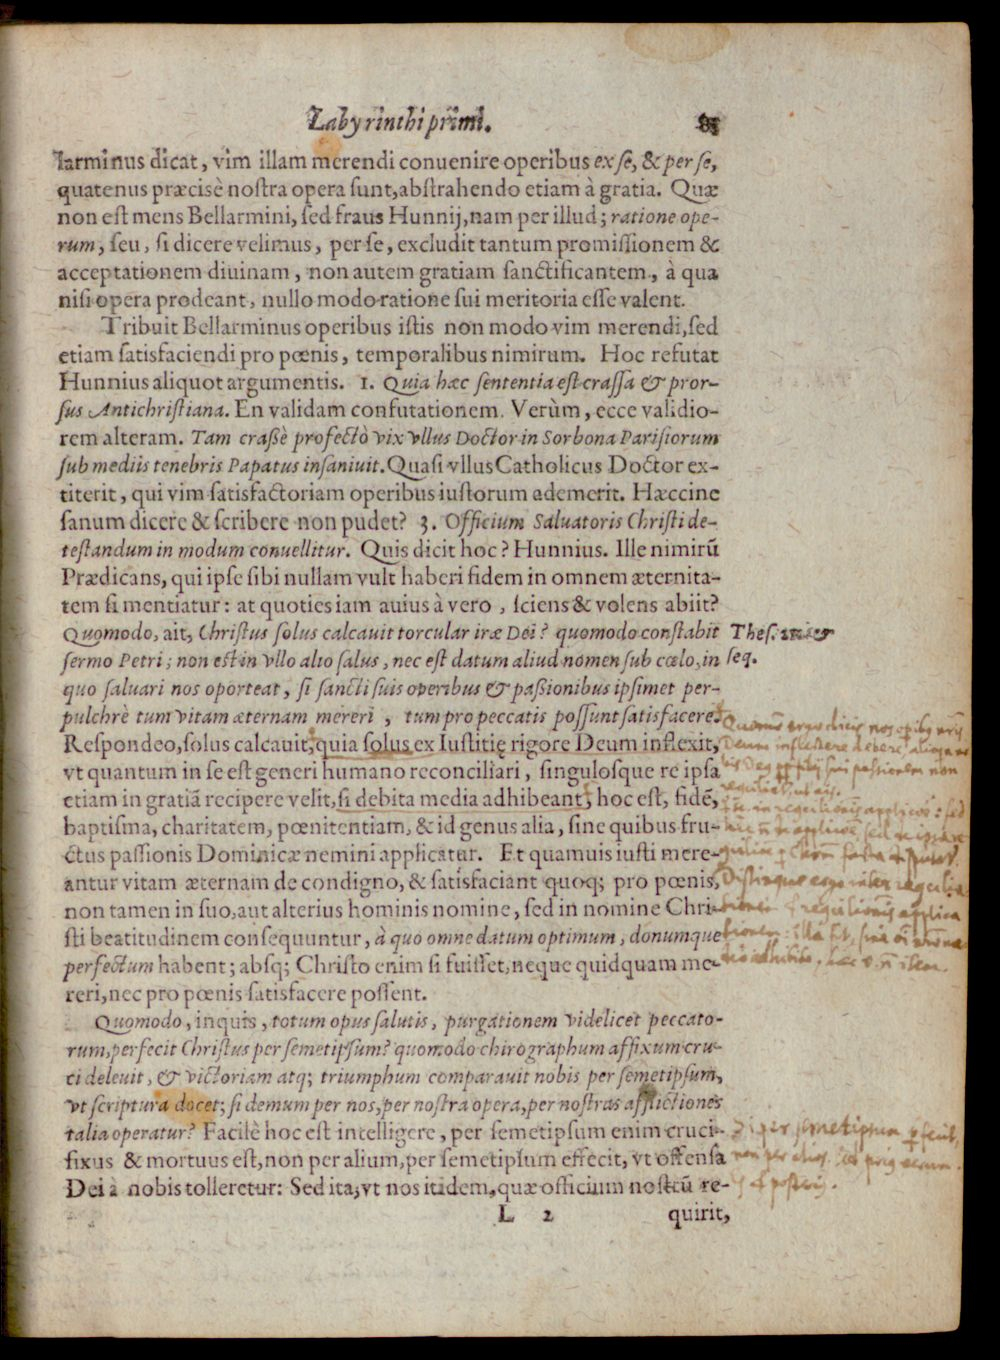 Labyrinthi primi.
larminus dicat, vim illam merendi conuenire operibus ex se, & per se,
quatenus præcisè nostra opera sunt, abstrahendo etiam à gratia. Quæ
non est mens Bellarmini, sed fraus Hunnij, nam per illud; ratione ope-
rum, seu, si dicere velimus, per se, excludit tantum promissionem &
acceptationem diuinam, non autem gratiam sanctificantem, à qua
nisi opera prodeant, nullo modo ratione sui meritoria esse valent.
Tribuit Bellarminus operibus istis non modo vim merendi, sed
etiam satisfaciendi pro pœnis, temporalibus nimirum. Hoc refutat
Hunnius aliquot argumentis. 1. Quia hæc sententia est crassa & pror-
sus Antichristiana. En validam confutationem. Verùm, ecce validio-
rem alteram. Tam crassè profectò vix vllus Doctor in Sorbona Parisiorum
sub mediis tenebris Papatus insaniuit. Quasi vllus Catholicus Doctor ex-
titerit, qui vim satisfactoriam operibus iustorum ademerit. Hæccine
sanum dicere & scribere non pudet? 3. Officium Saluatoris Christi de-
testandum in modum conuellitur. Quis dicit hoc? Hunnius. Ille nimirū
Prædicans, qui ipse sibi nullam vult haberi fidem in omnem æternita-
tem si mentiatur: at quoties iam auius à vero, sciens & volens abiit?
Quomodo, ait, Christus solus calcauit torcular iræ Dei? quomodo constabit
sermo Petri; non est in vllo alio salus, nec est datum aliud nomen sub cœlo, in
quo saluari nos oporteat, si sancti suis operibus & passionibus ipsimet per-
pulchrè tum vitam æternam mereri, tum pro peccatis possunt satisfacere?
Respondeo, solus calcauit, quia solus ex Iustitię rigore Deum inflexit,
vt quantum in se est generi humano reconciliari, singulosque re ipsa
etiam in gratiā recipere velit, si debita media adhibeant, hoc est, fidē,
baptisma, charitatem, pœnitentiam, & id genus alia, sine quibus fru-
ctus passionis Dominicæ nemini applicatur. Et quamuis iusti mere-
antur vitam æternam de condigno, & satisfaciant quoq; pro pœnis,
non tamen in suo, aut alterius hominis nomine, sed in nomine Chri-
sti beatitudinem consequuntur, à quo omne datum optimum, donumque
perfectum habent; absq; Christo enim si fuisset, neque quidquam me-
reri, nec pro pœnis satisfacere possent.
Quomodo, inquis, totum opus salutis, purgationem videlicet peccato-
rum, perfecit Christus per semetipsum? quomodo chirographum affixum cru-
ci deleuit, & victoriam atq; triumphum comparauit nobis per semetipsum,
vt scriptura docet; si demum per nos, per nostra opera, per nostras afflictiones
talia operatur? Facilè hoc est intelligere, per semetipsum enim cruci-
fixus & mortuus est, non per alium, per semetipsum effecit, vt offensa
Dei à nobis tolleretur: Sed ita, vt nos itidem, quæ officium nostrū re-
L 2 quirit,
Thes.
seq.